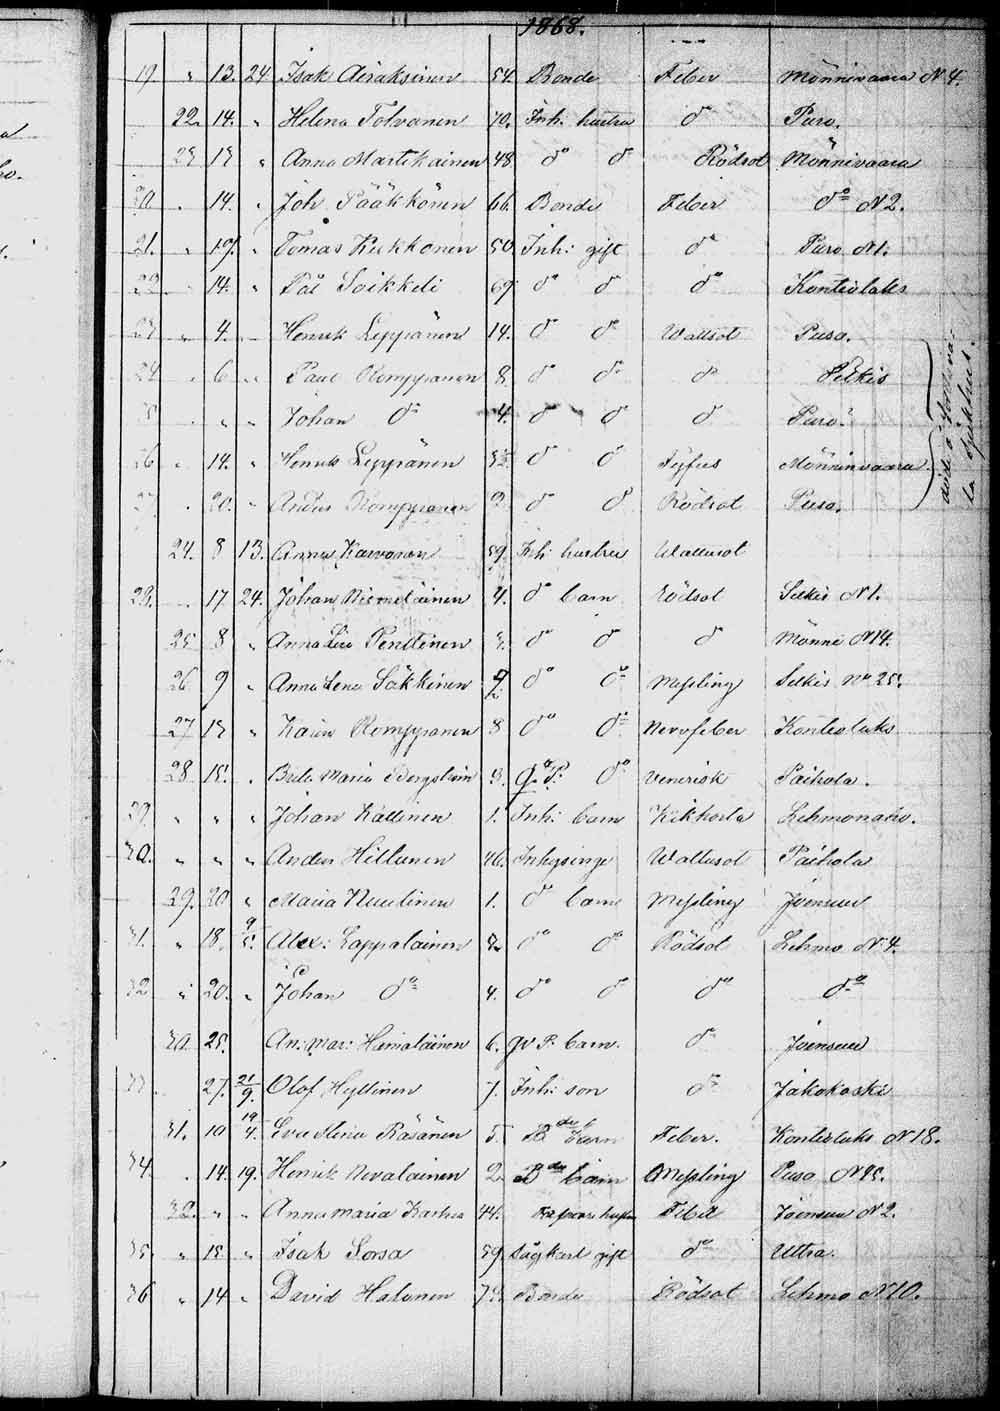 1868.
19. " 13. 24. Isak Airaksinen 54. Bonde Feber Mönnivaara N 4.
22. 14. " Helena Tolvanen 70. Inh. hustru do Puso.
23 13 " Anna Martikainen 48 do do Rödsot Mönnivaara
20 . 14. " Joh. Pääkkönen 66. Bonde Feber do N 2.
21. " 19. " Tomas Kukkonen 50. Inh: gift do Puso N 1.
22 14. " Pål Soikkeli 69 do do do Kontiolaks
23 " 4. " Henrik Leppänen 14. do do Wattsot Puso.
24 . 6 " Paul Romppanen 8. do do do Selkis
25 . " " Johan do 4. do do do Puso.
26 " 14. " Henrik Leppänen do do Tyfus Mönninvaara.
27 . 20. " Anders Romppanen 2 do do Rödsot Puso.
24. 8 13. Anna Karvonen 59. Inh. hustru Wattusot
28. . 17. 24. Johan Niemeläinen 4. do barn Rödsot Selkis N 1.
25 8 " Anna Lisa Penttinen do do do Mönni N 14.
26 9 " Anna Lena Säkkinen do do Messling Selkis No 25.
27 13 " Karin Romppanen 8 do do Nervfeber Kontiolaks
28 15. . Brita Maria Bergström 3. Q. P. do Venerisk Paihola.
29. " " " Johan Kättinen 1. Inh: barn Kikhosta Lehmonaho.
30. " " " Anders Hiltunen 46. Inhysinge Wattusot Paihola
29. 20 " Maria Nuutinen 1. do barn Messling Joensuu
31. " 18. 9/5. Alex: Lappalainen do do Rödsot Lehmo N. 4.
32 " 20. " Johan do 4. do do do do
30. 25. An: Mar: Hämäläinen 6. qv P. barn. do Joensuu
33 27. 21/9. Olof Hyttinen 7. Inh: son do Jakokoski
31. 10 19/4. Eva Stina Räsänen 5. Bde barn Feber. Kontiolaks N 18.
34 . 14. 19. Henrik Nevalainen 2. Bde barn Messling Puso N 25.
32. " " Anna Maria Karhu 44. Feber Joensuu N 2.
35 " 15 " Isak Sorsa 59 Sågkarl gift do Uttra.
36 " 14 " David Halonen Bonde Rödsot Lehmo N 10.